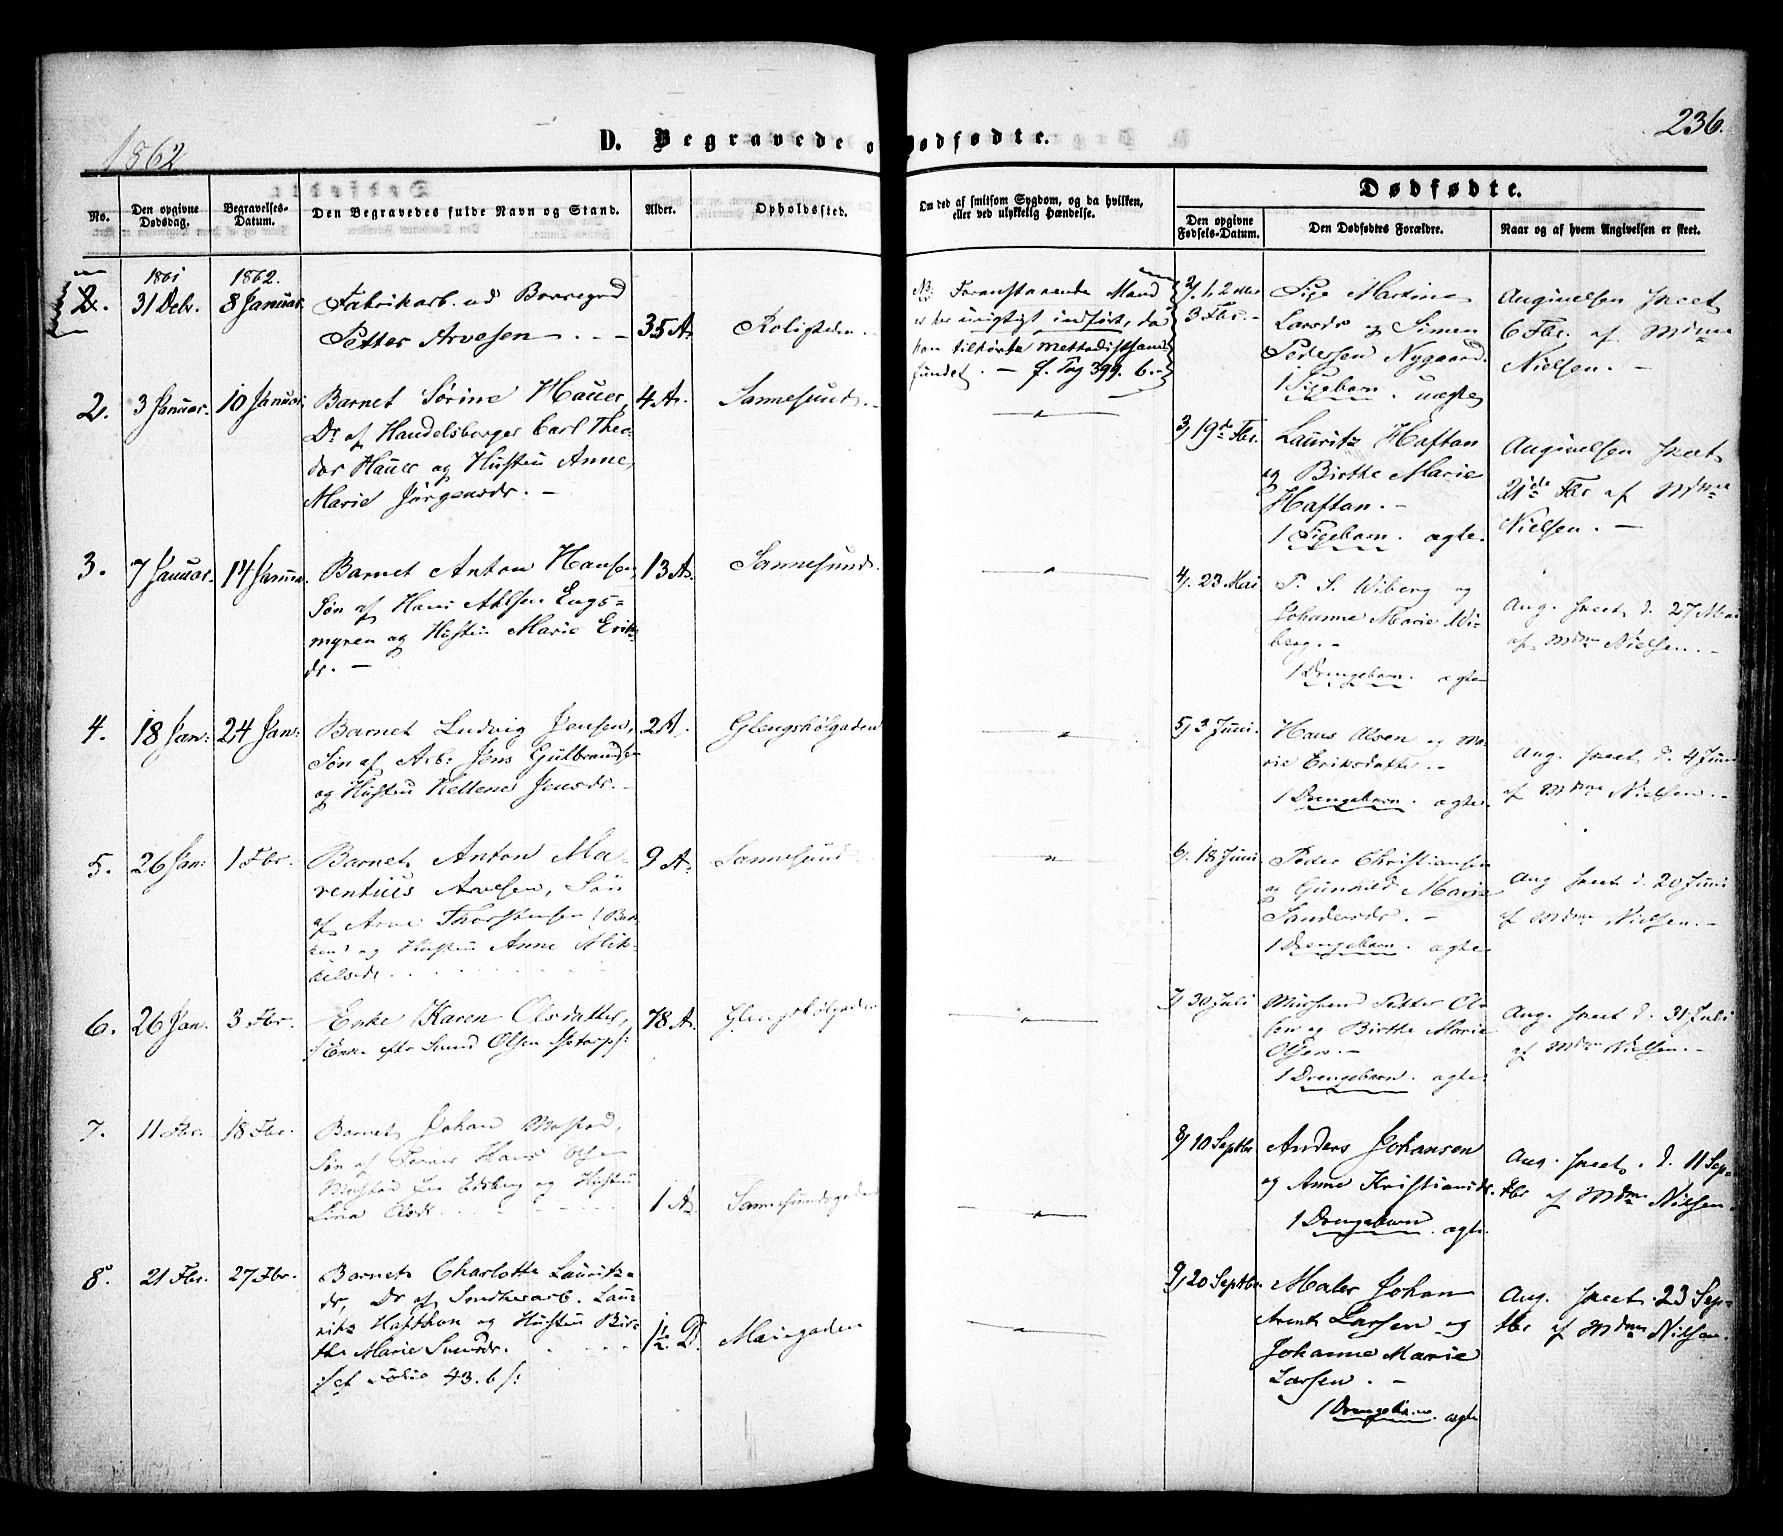 1862
236.
D. Begravede o
ødfødte.
Dødfødte.
No.
Den opgivne Dødsdag.
Begravelses-Datum.
Den Begravedes fulde Navn og Stand.
Alder.
Opholdssted.
Om død af smitsom Sygdom, og da hvilken,
eller ved ulykkelig Hændelse.
Den opgivne Fødsels-Datum.
Den Dødfødtes Forældre.
Naar og af hvem Angivelsen er skeet.
1861 1862.
2. 31 Debr. 8 Januar. Fabrikarb. ved Borregrd
Petter Arvesen . - - 35 A. Roligheden.
NB. Foranstaaende Mand
er her urigtigt indført, da
han tilhørte Methodistsam
fundet. - f. Pag 399. b. -
2. 3 Januar. 10 Januar. Barnet Sørine Hauer, 4 A. Sannesund.
Dr. af Handelsborger Carl Theo-
dor Hauer og Hustru Anne
Marie Jørgensdr. -
3. 7 Januar. 14 Januar. Barnet Anton Hansen, 13 A. Sannesund.
Søn af Hans Ahlsen Engs=
myren og Hustru Marie Eriks
dr. -
4. 18 Jan: 24 Jan: Barnet Ludvig Jensen, 2 A. Glengshølgaden
Søn af Arb. Jens Gulbrandsen
og Hustru Kellene Jensdr. -
5. 26 Jan: 1 Fbr. Barnet Anton Ma- 9 A. Sannesund
rentius Arvesen, Søn
af Arve Thorstensen (Bak
ken) og Hustru Anne Mik-
kelsdr.
6. 26 Jan. 3 Fbr. Enke Karen Olsdatter, 78 A. Glengshølgaden
/: Enke efter Svend Olsen Istorp :/
7. 11 Fbr. 18 Fbr. Barnet Johan Mostad,
Søn af Hans Olsen
Mostad fra Edsberg og Hustru
Lina Olsdr. 1 A. Sannesundsgaden
8. 21 Fbr. 27 Fbr. Barnet Charlotte Lauritz-
dr, Dr af Lau-
ritz Hafthon og Hustru Bir-
the Marie Svensdr. 1½ D. Maiegaden
/: cf Folio 43. b :/
2/ 1, 2 eller
3 Fbr. -
Pige Martine
Larsdr og Simen
Pedersen Nygaard.
1 Pigebarn. uægte
Angivelsen skeet
6 Fbr. af Mdme
Nielsen. -
3/ 19de Fbr. Lauritz Haftan
og Birthe Marie
Haftan. -
1 Pigebarn. ægte.
Angivelsen skeet
21de Fbr af Mdme
Nielsen. -
4/. 23 Mai P. S. Wiberg og
Johanne Marie Wi-
berg. -
1 Drengebarn. ægte
Ang. skeet d. 27 Mai
af Mdme Nielsen. -
5/ 3 Juni. Hans Olsen og Ma-
rie Eriksdatter. -
1 Drengebarn. ægte
Ang. skeet d. 4 Juni
af Mdme Nielsen. -
6/. 18 Juni Peder Christiansen
og Gunhild Marie
Sandersdr. -
1 Drengebarn. ægte
Ang skeet d. 20 Juni
af Mdme Nielsen. -
7/ 30 Juli Petter Ol-
sen og Birthe Marie
Olsen. -
1 Drengebarn. ægte
Ang. skeet d. 31 Juli
af Mdme Nielsen. -
8/ 10 Septbr Anders Johansen
og Anne Kristiansdr.
1 Drengebarn. ægte.
Ang. skeet. d. 11 Sep-
tbr af Mdme Nielsen.
9/ 20 Septbr Maler Johan
Arent Larsen og
Johanne Marie
Larsen. -
1 Drengebarn. ægte
Ang. skeet. 23 Sep-
tbr af Mdme Nielsen.